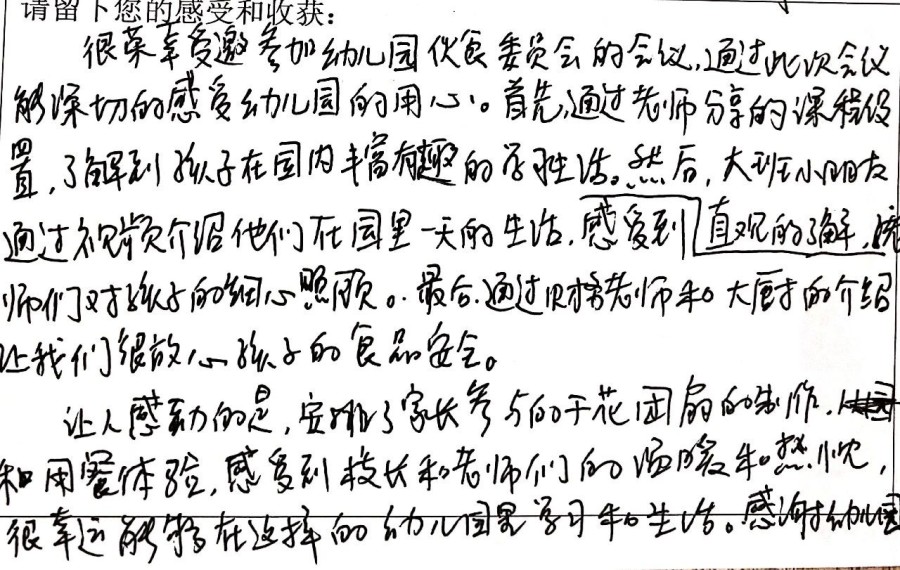 请留下您的感受和收获：
很荣幸受邀参加幼儿园伙食委员会的会议，通过此次会议
能深切的感受幼儿园的用心。首先，通过老师分享的课程设
置，了解到孩子在园内丰富有趣的学习生活。然后，大班小朋友
通过视频介绍他们在园里一天的生活，感受到直观的了解，
师们对孩子的细心照顾。最后，通过老师和大厨的介绍
让我们很放心孩子的食品安全。
让人感动的是，安排了家长参与的干花团扇的制作，
和用餐体验，感受到校长和老师们的温暖和热忱，
很幸运能够在这样的幼儿园里学习和生活。感谢幼儿园